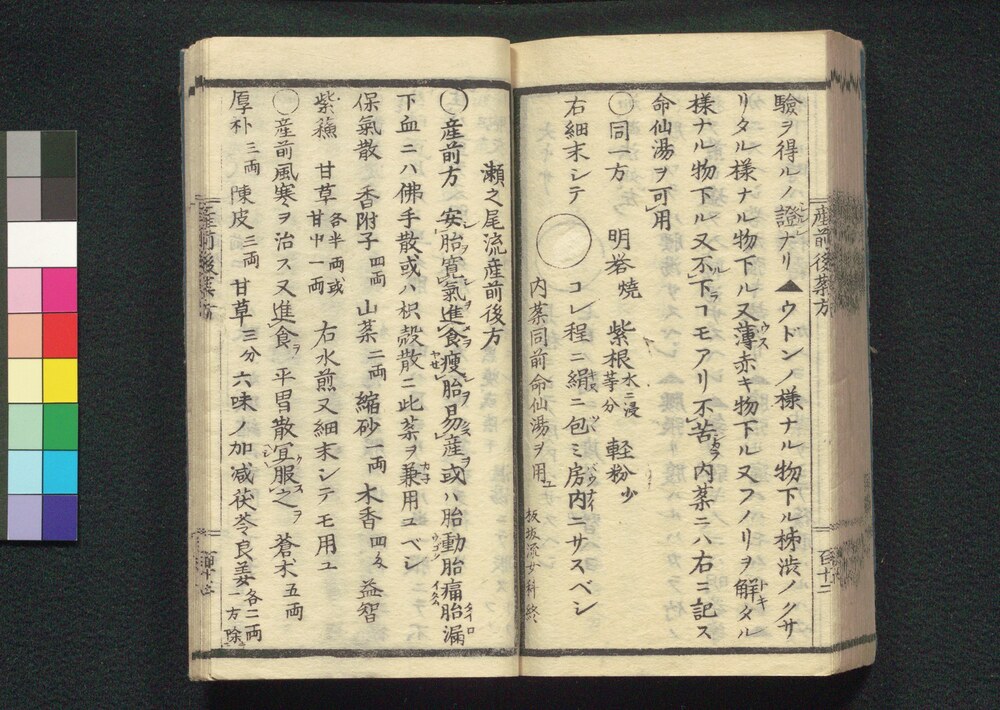 産前後薬方
百十二
驗ヲ得ルノ證ナリ▲ウドンノ様ナル物下ル柹渋ノクサ
リタル様ナル物下ル又薄赤キ物下ル又フノリヲ解タル
様ナル物下ル又不下コモアリ不苦内薬ニハ右ニ記ス
命仙湯ヲ可用
〇同一方 明礬焼 紫根水ニ浸等分 軽粉少
右細末シテ 〇 コレ程ニ絹ニ包ミ房内ニサスベシ
内薬同前命仙湯ヲ用ユ 板坂流女科終
瀬之尾流産前後方
〇産前方 安胎寛氣進食瘦胎易産或ハ胎動胎痛胎漏
下血ニハ佛手散或ハ枳殻散ニ此薬ヲ兼用ユベシ
保氣散 香附子四両 山薬二両 縮砂一両 木香四匁 益智
紫蘓 甘草各半両或甘中一両 右水煎又細末シテモ用ユ
〇産前風寒ヲ治ス又進食 平胃散宜服之 蒼朮五両
厚朴三両 陳皮三両 甘草三分 六味ノ加减茯苓良姜各二両一方除
産前後薬方